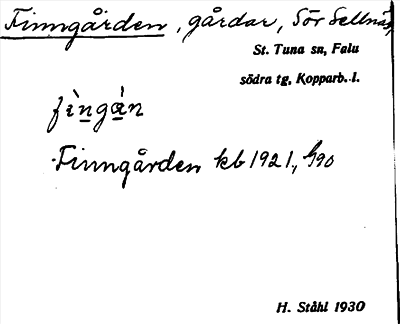 Finngården, gårdar, Sör Sellnäs,
St. Tuna sn, Falu
södra tg. Kopparb. l.
fìngàn
Finngården kb 1921,
H. Ståhl 1930